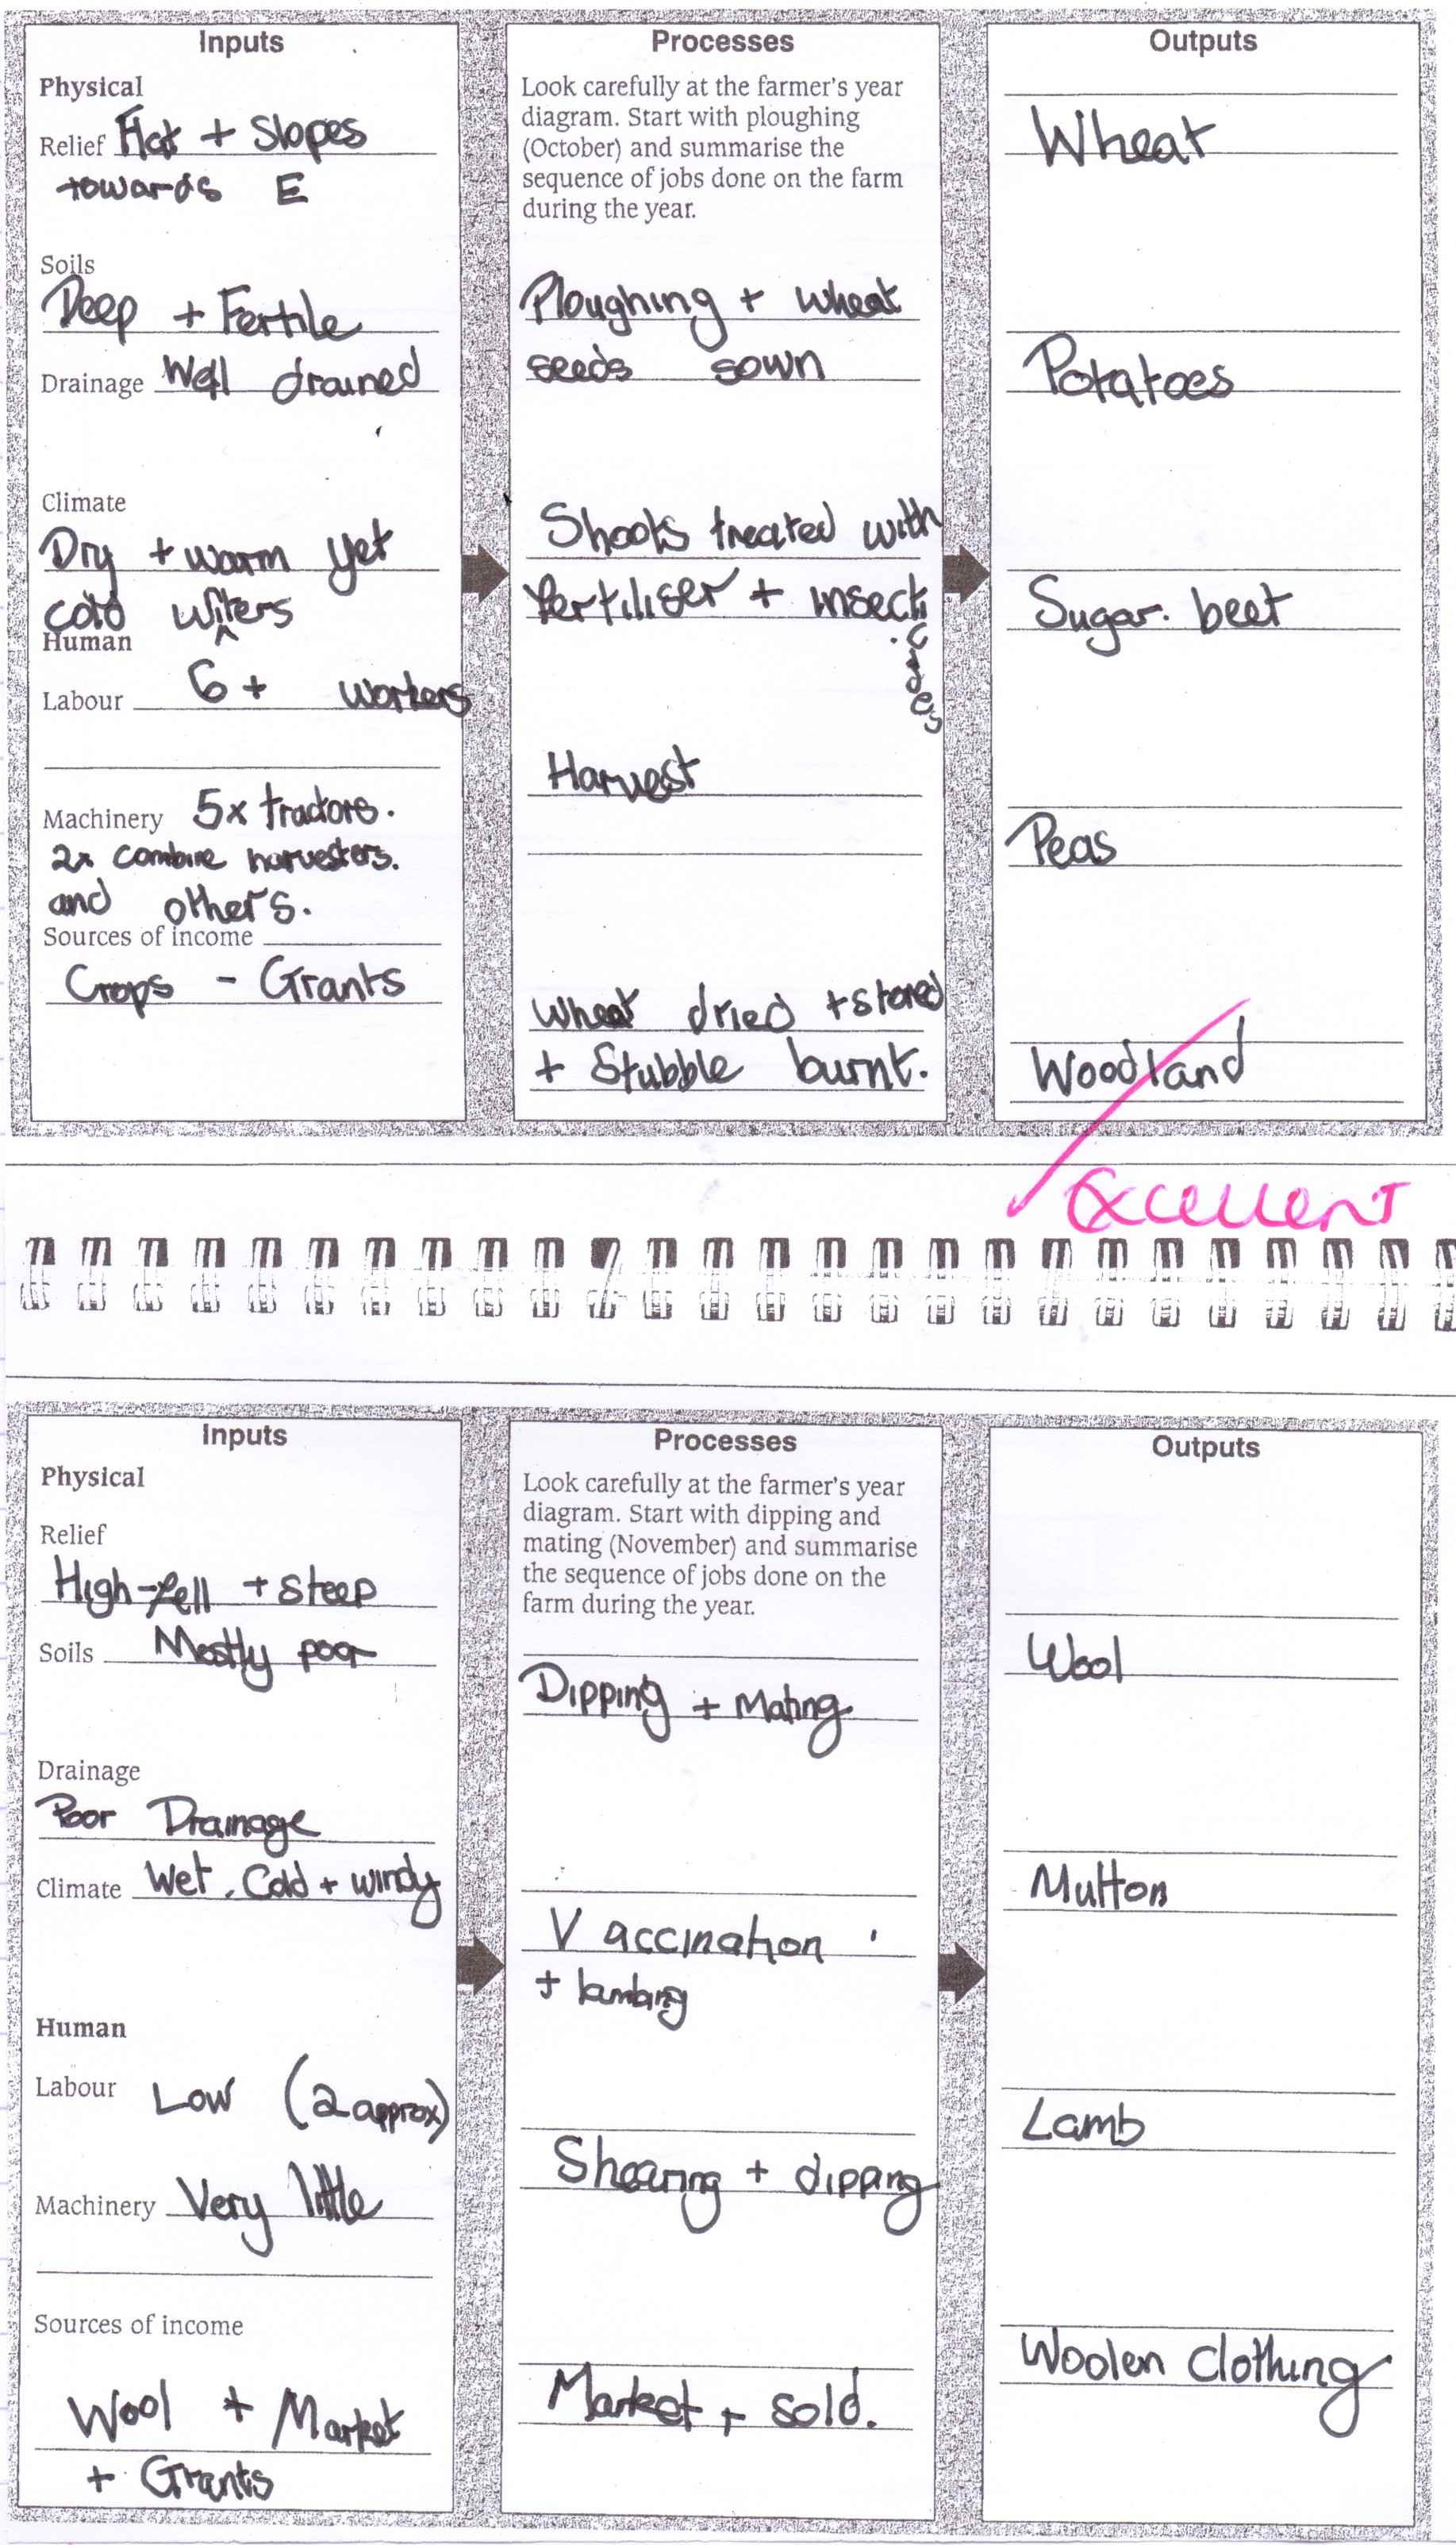 Inputs
Physical
Relief Flat + Slopes
towards E
Soils
Deep + Fertile
Drainage Well drained
Climate
Dry + warm yet
cold witers
Human
Labour 6 + workers
Machinery 5x tractors.
2x combine harvesters.
and others.
Sources of income
Crops - Grants
Processes
Look carefully at the farmer's year
diagram. Start with ploughing
(October) and summarise the
sequence of jobs done on the farm
during the year.
Ploughing + wheat
seeds sown
Shoots treated with
fertiliser + insecti
Harvest
Wheat dried + stored
+ Stubble burnt.
Outputs
Wheat
Potatoes
Sugar. beet
Peas
Woodland
Excellent
Inputs
Physical
Relief
High-fell + steep
Soils Mostly poor
Drainage
Poor Drainage
Climate Wet, Cold + windy
Human
Labour Low (2 approx)
Machinery Very little
Sources of income
Wool + Market
+ Grants
Processes
Look carefully at the farmer's year
diagram. Start with dipping and
mating (November) and summarise
the sequence of jobs done on the
farm during the year.
Dipping + Mating
Vaccination
+ lambing
Shearing + dipping
Market + sold.
Outputs
Wool
Mutton
Lamb
Woolen Clothing